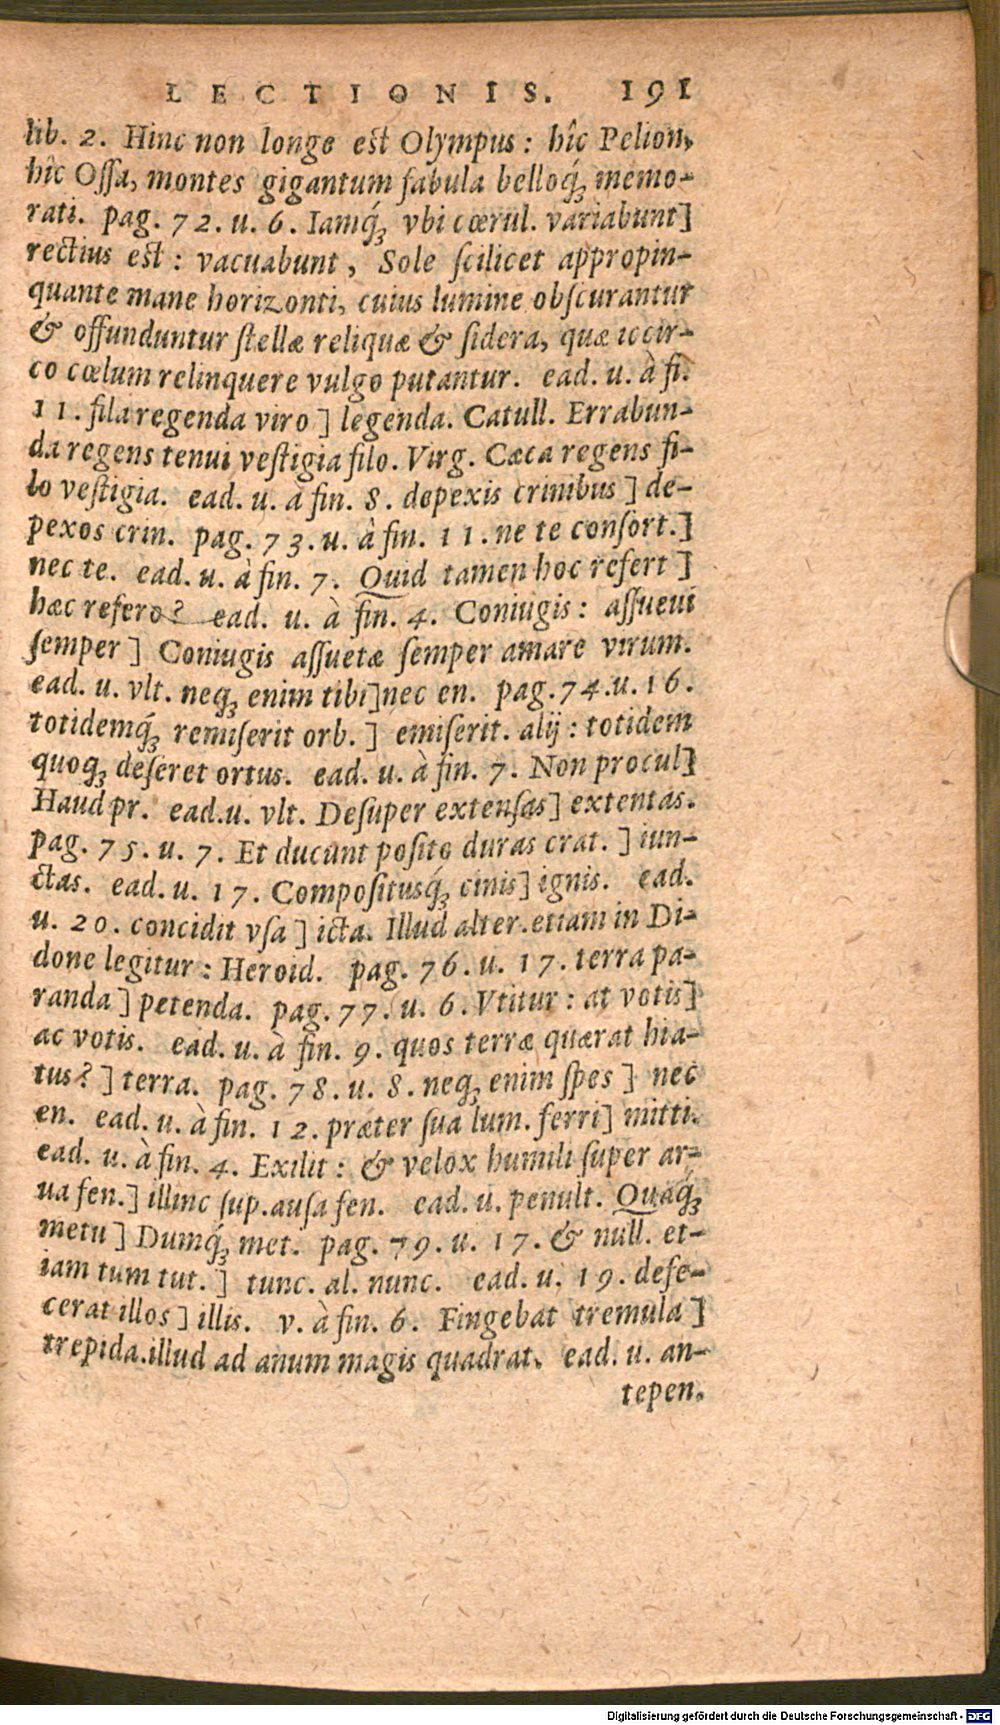 LECTIONIS. 191
lib. 2. Hinc non longe est Olympus: hîc Pelion,
hîc Ossa, montes gigantum fabula belloq́ꝫ memo-
rati. pag. 72. u. 6. Iamq́ꝫ vbi cœrul. variabunt]
rectius est: vacuabunt, Sole scilicet appropin-
quante mane horizonti, cuius lumine obscurantur
& offunduntur stellæ reliquæ & sidera, quæ iccir-
co cœlum relinquere vulgo putantur. ead. u. à fi.
11. fila regenda viro] legenda. Catull. Errabun-
da regens tenui vestigia filo. Virg. Cæca regens fi-
lo vestigia. ead. u. à fin. 8. depexis crinibus] de-
pexos crin. pag. 73. u. à fin. 11. ne te consort.]
nec te. ead. u. à fin. 7. Quid tamen hoc refert]
hæc refero? ead. u. à fin. 4. Coniugis: assueui
semper] Coniugis assuetæ semper amare virum.
ead. u. vlt. neqꝫ enim tibi] nec en. pag. 74. u. 16.
totidemq́ꝫ remiserit orb.] emiserit. alij: totidem
quoqꝫ deseret ortus. ead. u. à fin. 7. Non procul]
Haud pr. ead. u. vlt. Desuper extensas] extentas.
pag. 75. u. 7. Et ducunt posito duras crat.] iun-
ctas. ead. u. 17. Compositusq́ꝫ cinis] ignis. ead.
u. 20. concidit vsa] icta. Illud alter. etiam in Di-
done legitur: Heroid. pag. 76. u. 17. terra pa-
randa] petenda. pag. 77. u. 6. Vtitur: at votis]
ac votis. ead. u. à fin. 9. quos terræ quærat hia-
tus?] terra. pag. 78. u. 8. neqꝫ enim spes] nec
en. ead. u. à fin. 12. præter sua lum. ferri] mitti.
ead. u. à fin. 4. Exilit: & velox humili super ar-
ua fen.] illinc sup. ausa fen. ead. u. penult. Quaq́ꝫ
metu] Dumq́ꝫ met. pag. 79. u. 17. & null. et-
iam tum tut.] tunc. al. nunc. ead. u. 19. defe-
cerat illos] illis. v. à fin. 6. Fingebat tremula]
trepida. illud ad anum magis quadrat. ead. u. an-
tepen.
Digitalisierung gefördert durch die Deutsche Forschungsgemeinschaft - DFG